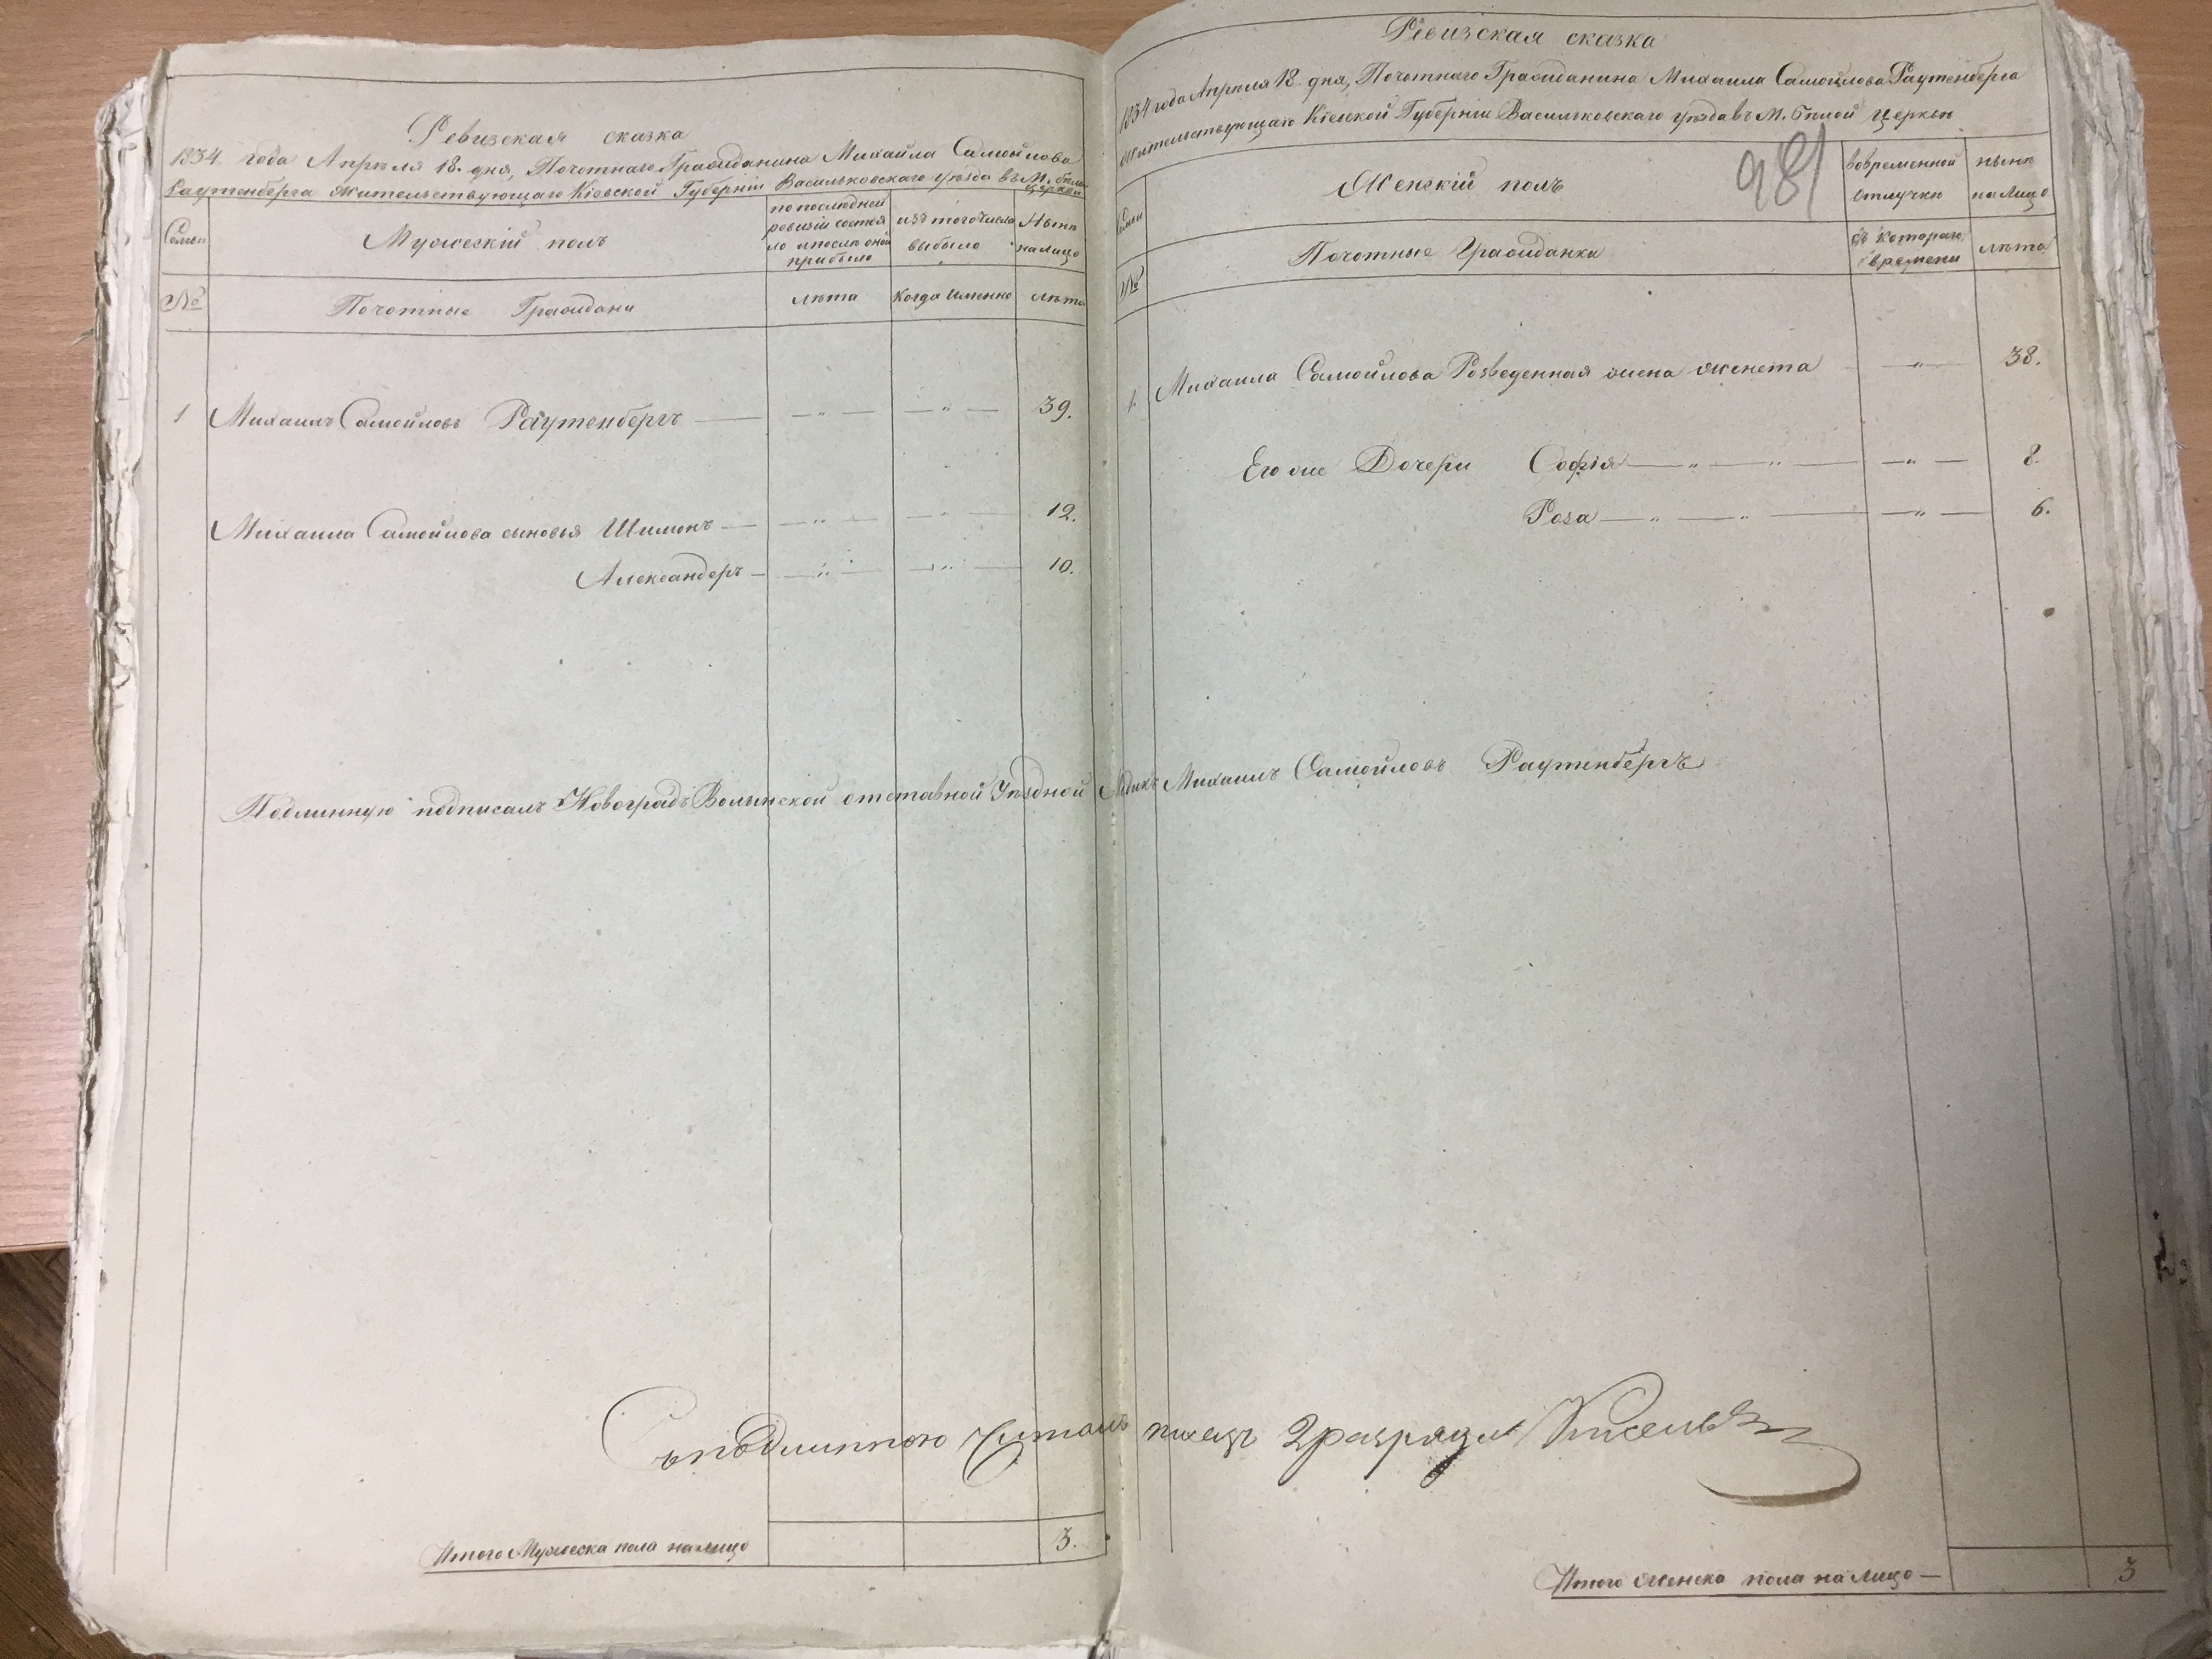 Ревизская сказка
1834. года Апрѣля 18. дня, Почотнаго Гражданина Михайла Самойлова
Раутенберга жительствующаго Кіевской Губерніи Васильковскаго уѣзда въ М. бѣлой
церкви
Семьи
Мужескій полъ
по последней
ревизіи состоя
ло и послѣ оной
прибыло
изъ того числа
выбыло
Нынѣ
на лицо
№
Почотные Граждани
лѣта
Когда именно
лѣта
1 Михаилъ Самойловъ Раутенбергъ — — „ — — „ — 39.
Михаила Самойлова сыновья Шимонъ — — „ — — „ — 12.
Александеръ — — „ — — „ — 10.
Подлинную подписалъ Новоградъ Волынской отставной Уѣздной
Съ подлинною Читалъ
Итого Мужеска пола на лицо 3.
Ревизская сказка
1834 года Апрѣля 18 дня, Почотнаго Гражданина Михаила Самойлова Раутенберга
жительствующаго Кіевской Губерніи Васильковскаго уѣзда въ М. бѣлой церкви
981
Семьи
Женскій полъ
во временной
отлучки
нынѣ
на лицо
№
Почотные Гражданки
съ котораго
времени
лѣта
1. Михаила Самойлова Розведенная жена женета — „ — 38.
Его же Дочери Софія — „ — „ — — „ — 8.
Роза — „ — „ — — „ — 6.
Михаилъ Самойловъ Раутенбергъ
писецъ 2 разряда Киселевъ
Итого женска пола на лицо — 3